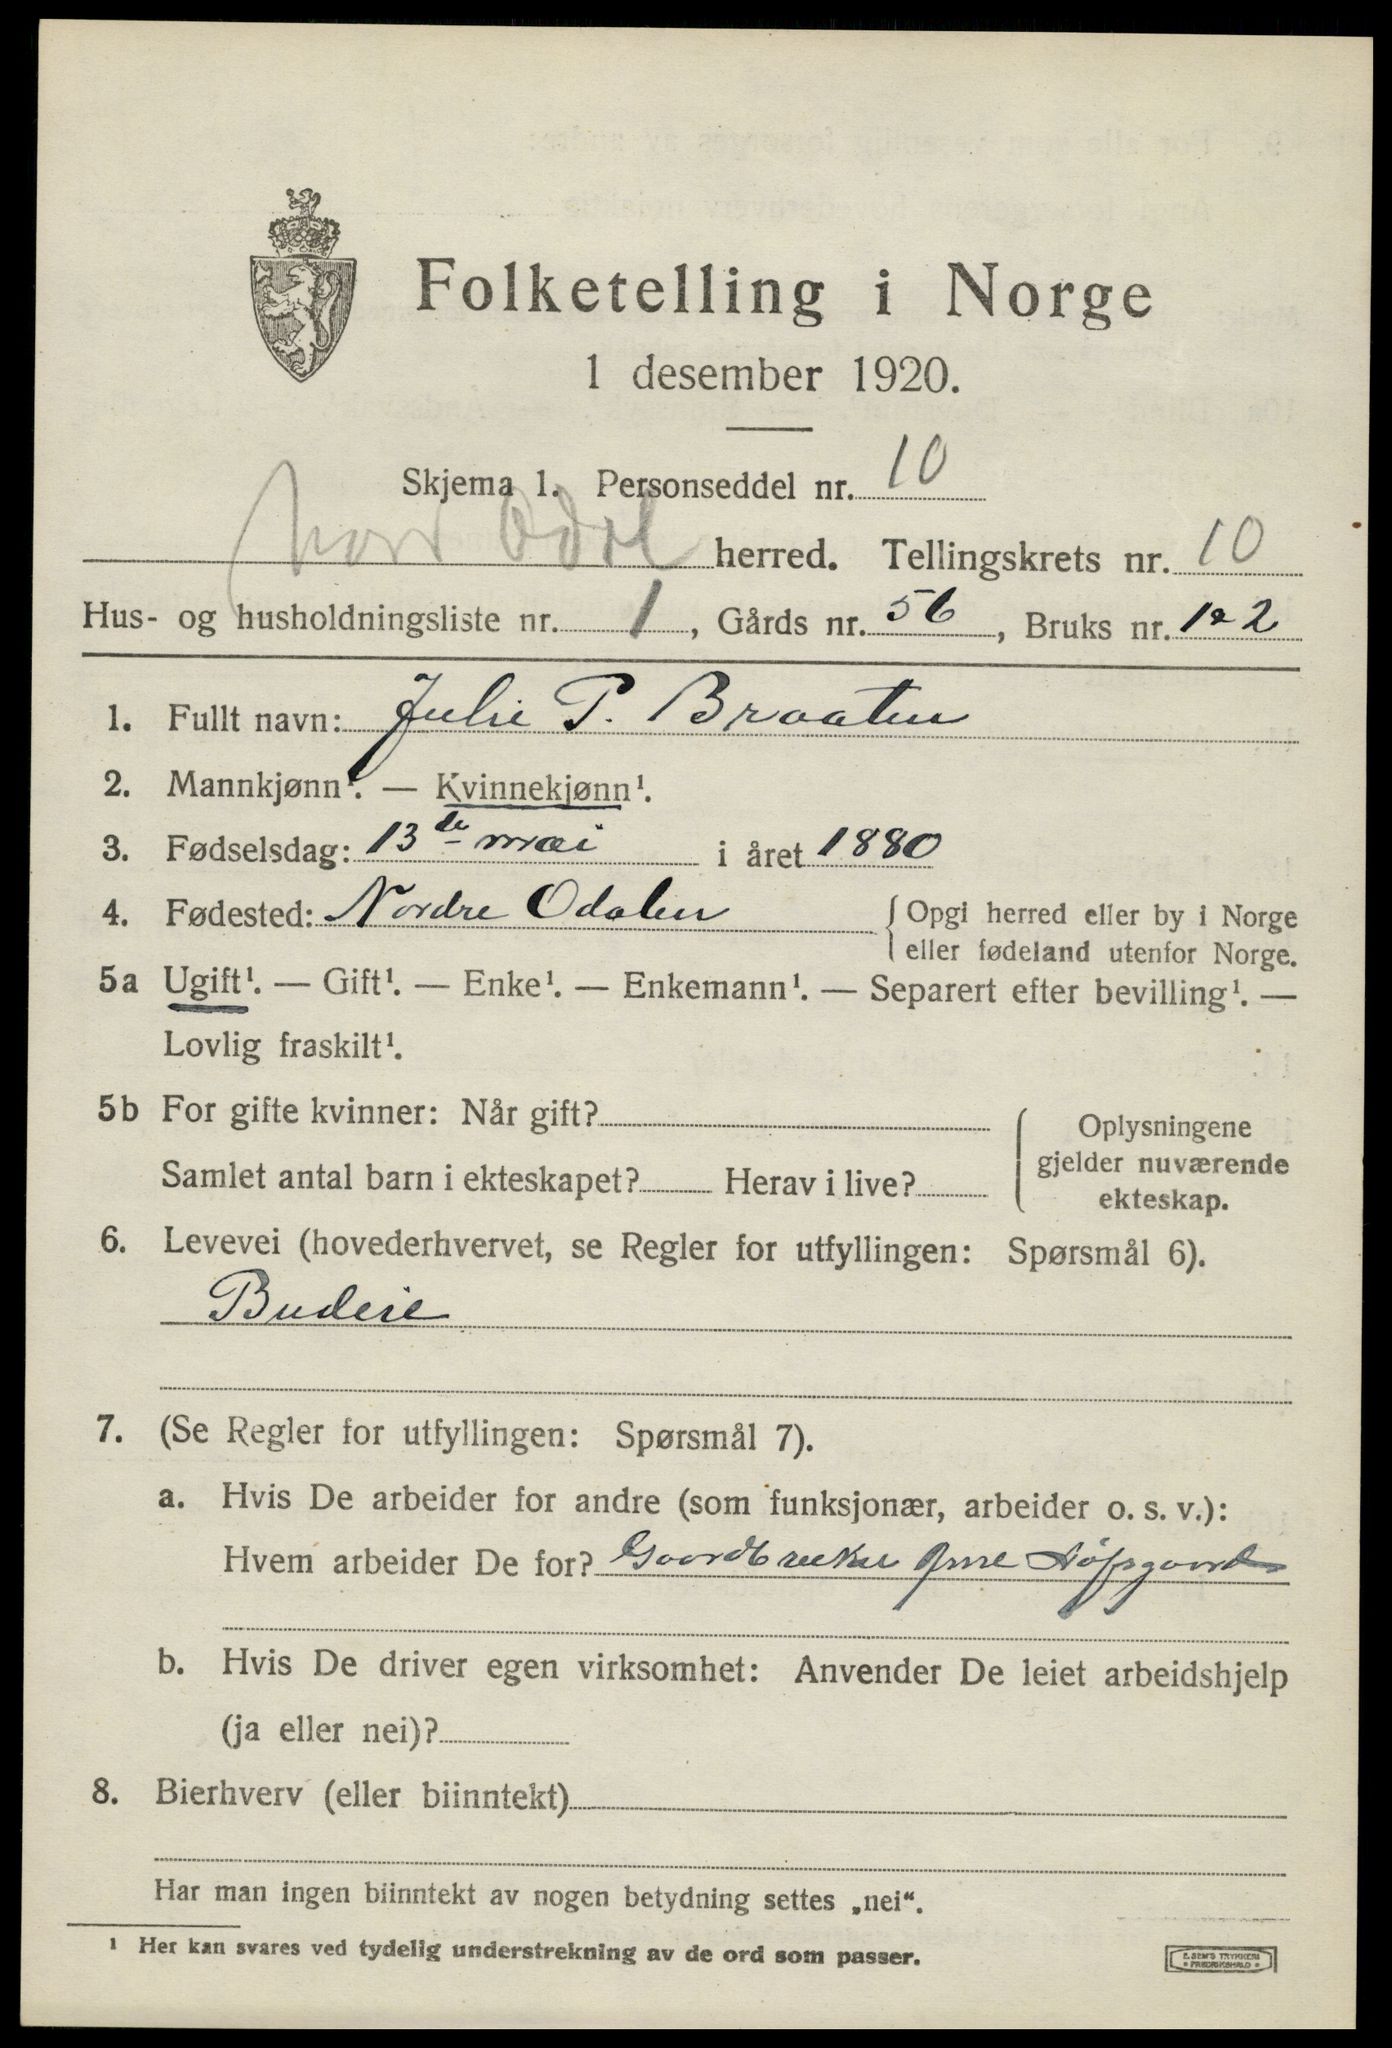 Folketelling i Norge
1 desember 1920.
Skjema 1. Personseddel nr. 10
herred. Tellingskrets nr. 10
Hus- og husholdningsliste nr. 1, Gårds nr. 56, Bruks nr. 1 2
1. Fullt navn: Julie P. Braaten
2. Mannkjønn¹. — Kvinnekjønn¹.
3. Fødselsdag: 13de mai i året 1880
4. Fødested: Nordre Odalen
Opgi herred eller by i Norge
eller fødeland utenfor Norge.
5a Ugift¹. — Gift¹. — Enke¹. — Enkemann¹. — Separert efter bevilling¹. —
Lovlig fraskilt¹.
5b For gifte kvinner: Når gift?
Samlet antal barn i ekteskapet? Herav i live?
Oplysningene
gjelder nuværende
ekteskap.
6. Levevei (hovederhvervet, se Regler for utfyllingen: Spørsmål 6).
Budeie
7. (Se Regler for utfyllingen: Spørsmål 7).
a. Hvis De arbeider for andre (som funksjonær, arbeider o. s. v.):
Hvem arbeider De for? Gaardbruker
b. Hvis De driver egen virksomhet: Anvender De leiet arbeidshjelp
(ja eller nei)?
8. Bierhverv (eller biinntekt)
Har man ingen biinntekt av nogen betydning settes „nei“.
¹ Her kan svares ved tydelig understrekning av de ord som passer.
E. SEM'S TRYKKERI
FREDRIKSHALD